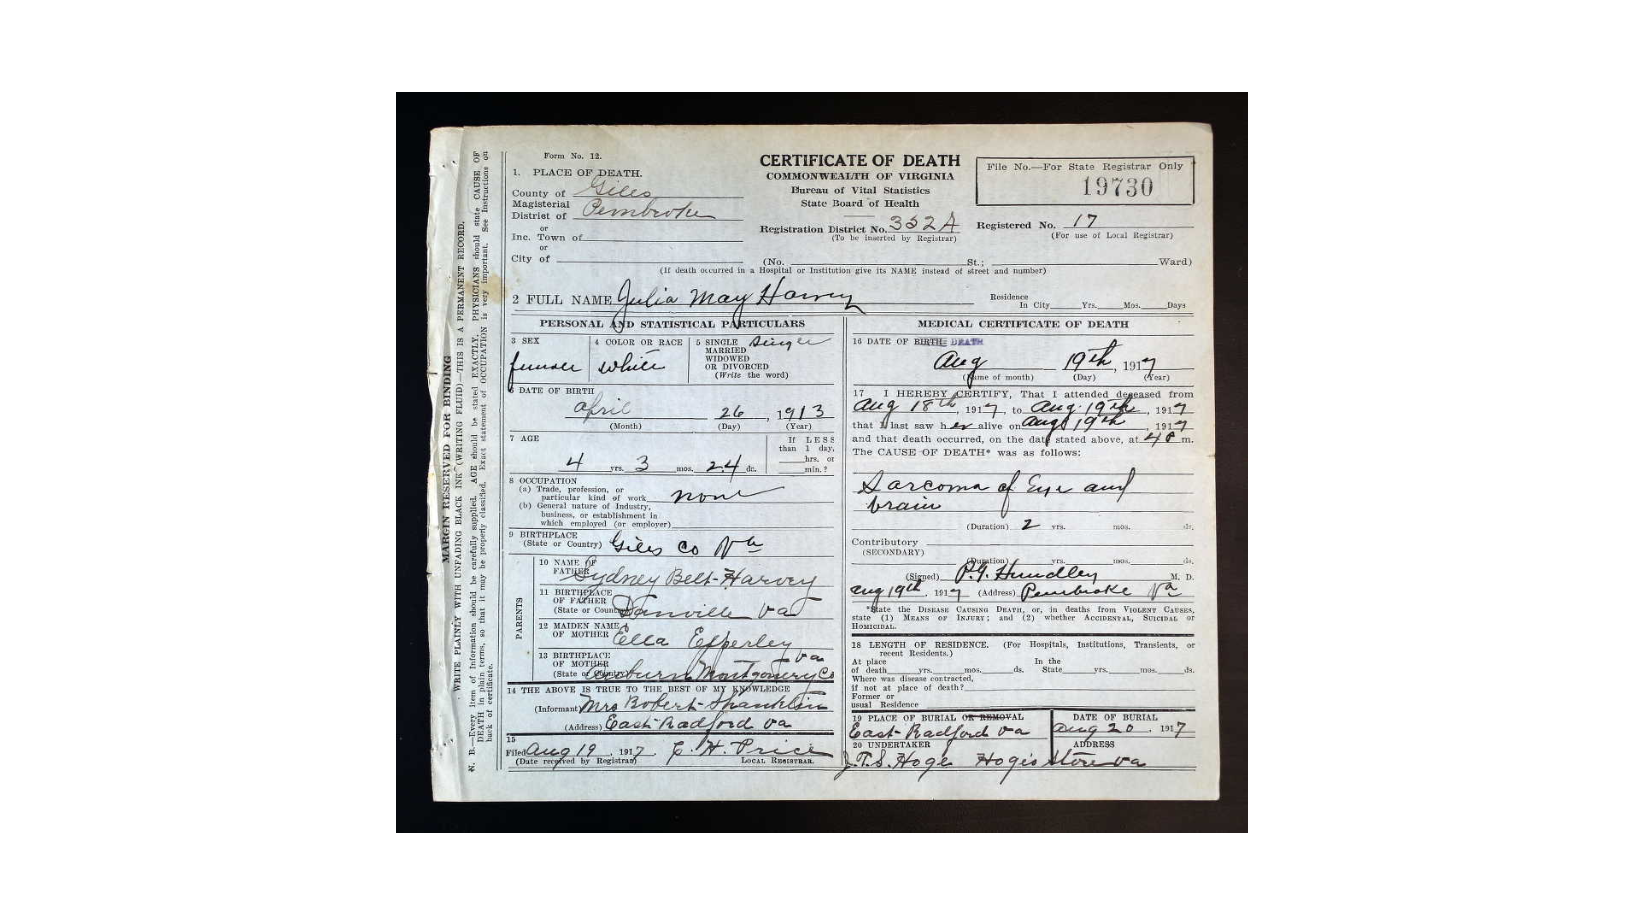 Form No. 12.
1. PLACE OF DEATH.
County of Giles
Magisterial
District of Pembroke
or
Inc. Town of
or
City of
CERTIFICATE OF DEATH
COMMONWEALTH OF VIRGINIA
Bureau of Vital Statistics
State Board of Health
Registration District No. 352A
(To be inserted by Registrar)
File No.—For State Registrar Only
19730
Registered No. 17
(For use of Local Registrar)
(No. St.; Ward)
(If death occurred in a Hospital or Institution give its NAME instead of street and number)
2 FULL NAME Julia May Harvey
Residence
In City Yrs. Mos. Days
PERSONAL AND STATISTICAL PARTICULARS
3 SEX
female
4 COLOR OR RACE
white
5 SINGLE Single
MARRIED
WIDOWED
OR DIVORCED
(Write the word)
6 DATE OF BIRTH
April 26, 1913
(Month) (Day) (Year)
7 AGE
4 yrs. 3 mos. 24 ds.
If LESS
than 1 day,
hrs. or
min.?
8 OCCUPATION
(a) Trade, profession, or
particular kind of work none
(b) General nature of Industry,
business, or establishment in
which employed (or employer)
9 BIRTHPLACE
(State or Country) Giles Co Va
PARENTS
10 NAME OF
FATHER Sydney Belt Harvey
11 BIRTHPLACE
OF FATHER
(State or Country) Danville Va
12 MAIDEN NAME
OF MOTHER Ella Epperley
13 BIRTHPLACE
OF MOTHER Va
(State or Country) Auburn Montgomery Co
14 THE ABOVE IS TRUE TO THE BEST OF MY KNOWLEDGE
(Informant) Mrs Robert Shanklin
(Address) East Radford Va
15
Filed Aug 19, 1917 C. H. Price
(Date received by Registrar) LOCAL REGISTRAR.
MEDICAL CERTIFICATE OF DEATH
16 DATE OF BIRTH DEATH
Aug 19th, 1917
(Name of month) (Day) (Year)
17 I HEREBY CERTIFY, That I attended deceased from
Aug 18th, 1917, to Aug. 19th, 1917
that I last saw her alive on Aug 19th, 1917
and that death occurred, on the date stated above, at 4 P m.
The CAUSE OF DEATH* was as follows:
Sarcoma of Eye and
brain
(Duration) 2 yrs. mos. ds.
Contributory
(SECONDARY)
(Duration) yrs. mos. ds.
(Signed) P.G. Hundley M. D.
Aug 19th, 1917 (Address) Pembroke Va
*State the DISEASE CAUSING DEATH, or, in deaths from VIOLENT CAUSES,
state (1) MEANS OF INJURY; and (2) whether ACCIDENTAL, SUICIDAL or
HOMICIDAL.
18 LENGTH OF RESIDENCE. (For Hospitals, Institutions, Transients, or
recent Residents.)
At place In the
of death yrs. mos. ds. State yrs. mos. ds.
Where was disease contracted,
if not at place of death?
Former or
usual Residence
19 PLACE OF BURIAL OR REMOVAL
East Radford Va
DATE OF BURIAL
Aug 20, 1917
20 UNDERTAKER ADDRESS
J.T.S. Hoge Hoges Store Va
MARGIN RESERVED FOR BINDING
WRITE PLAINLY WITH UNFADING BLACK INK (WRITING FLUID)—THIS IS A PERMANENT RECORD.
N. B.—Every item of Information should be carefully supplied. AGE should be stated EXACTLY. PHYSICIANS should state CAUSE OF
DEATH in plain terms, so that it may be properly classified. Exact statement of OCCUPATION is very important. See Instructions on
back of certificate.